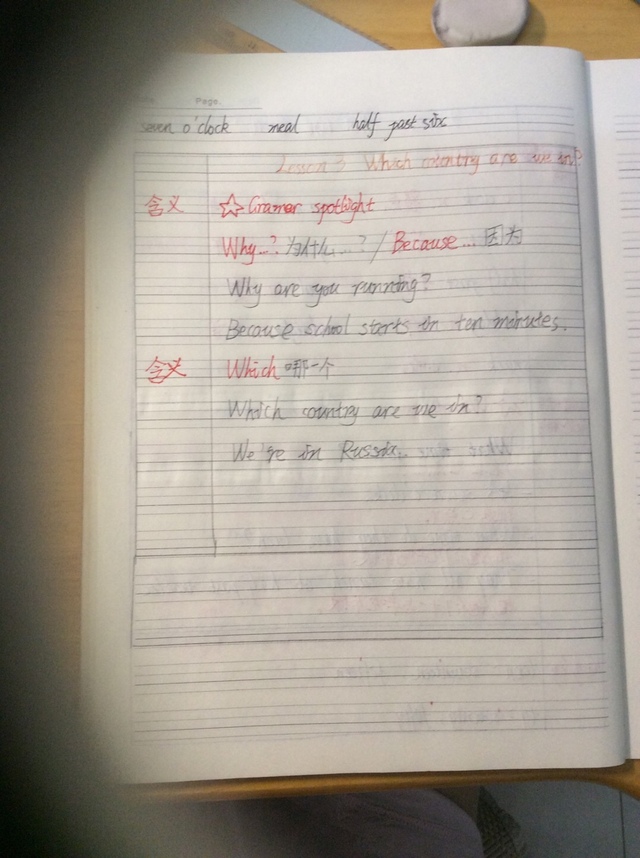 Page.
seven o'clock meal half past six
Lesson 3 Which country are we in?
含义 ☆Gramer spotlight
Why...? 为什么...? / Because... 因为
Why are you running?
Because school starts in ten minutes.
含义 Which 哪一个
Which country are we in?
We're in Russia.